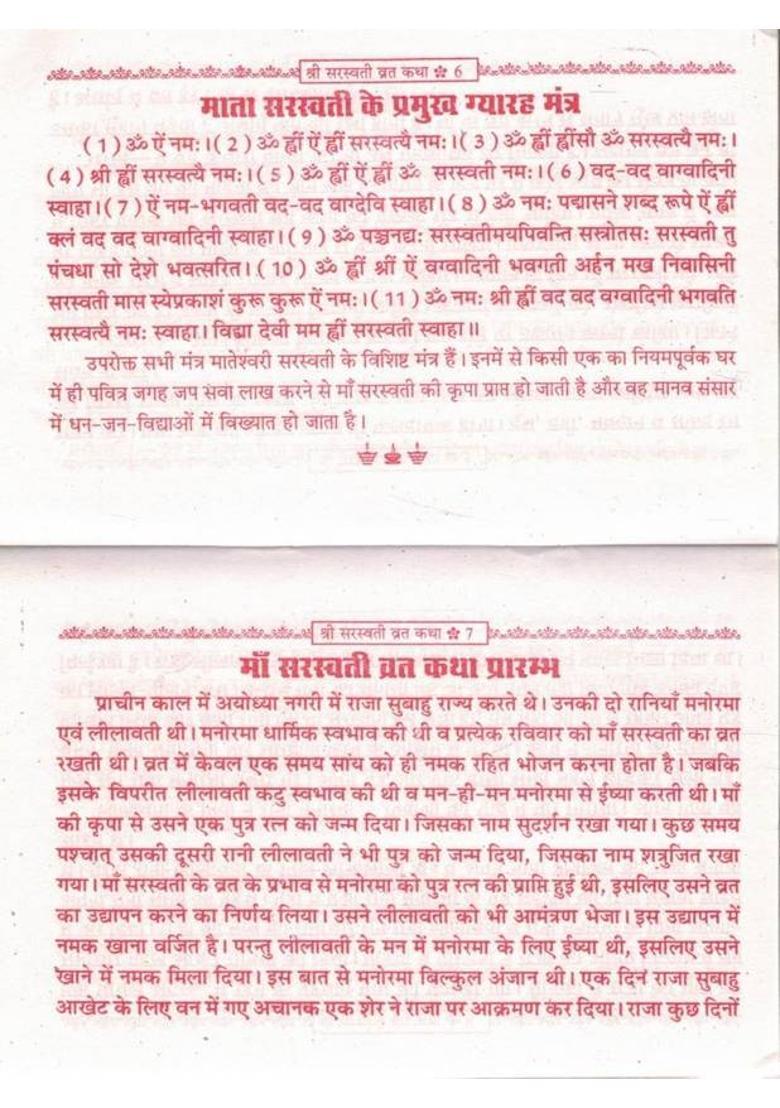 श्री सरस्वती व्रत कथा ✽ 6
माता सरस्वती के प्रमुख ग्यारह मंत्र
(1) ॐ ऐं नमः।(2) ॐ ह्रीं ऐं ह्रीं सरस्वत्यै नमः।(3) ॐ ह्रीं ह्रींसौ ॐ सरस्वत्यै नमः।
(4) श्री ह्रीं सरस्वत्यै नमः।(5) ॐ ह्रीं ऐं ह्रीं ॐ सरस्वती नमः।(6) वद-वद वाग्वादिनी
स्वाहा।(7) ऐं नम-भगवती वद-वद वाग्देवि स्वाहा।(8) ॐ नमः पद्मासने शब्द रूपे ऐं ह्रीं
क्लं वद वद वाग्वादिनी स्वाहा।(9) ॐ पञ्चनद्यः सरस्वतीमयपिवन्ति सस्त्रोतसः सरस्वती तु
पंचधा सो देशे भवत्सरित।(10) ॐ ह्रीं श्रीं ऐं वग्वादिनी भवगती अर्हन मख निवासिनी
सरस्वती मास स्येप्रकाशं कुरू कुरू ऐं नमः।(11) ॐ नमः श्री ह्रीं वद वद वग्वादिनी भगवति
सरस्वत्यै नमः स्वाहा। विद्या देवी मम ह्रीं सरस्वती स्वाहा॥
उपरोक्त सभी मंत्र मातेश्वरी सरस्वती के विशिष्ट मंत्र हैं। इनमें से किसी एक का नियमपूर्वक घर
में ही पवित्र जगह जप सवा लाख करने से माँ सरस्वती की कृपा प्राप्त हो जाती है और वह मानव संसार
में धन-जन-विद्याओं में विख्यात हो जाता है।
श्री सरस्वती व्रत कथा ✽ 7
माँ सरस्वती व्रत कथा प्रारम्भ
प्राचीन काल में अयोध्या नगरी में राजा सुबाहु राज्य करते थे। उनकी दो रानियाँ मनोरमा
एवं लीलावती थी। मनोरमा धार्मिक स्वभाव की थी व प्रत्येक रविवार को माँ सरस्वती का व्रत
रखती थी। व्रत में केवल एक समय सांय को ही नमक रहित भोजन करना होता है। जबकि
इसके विपरीत लीलावती कटु स्वभाव की थी व मन-ही-मन मनोरमा से ईष्या करती थी। माँ
की कृपा से उसने एक पुत्र रत्न को जन्म दिया। जिसका नाम सुदर्शन रखा गया। कुछ समय
पश्चात् उसकी दूसरी रानी लीलावती ने भी पुत्र को जन्म दिया, जिसका नाम शत्रुजित रखा
गया। माँ सरस्वती के व्रत के प्रभाव से मनोरमा को पुत्र रत्न की प्राप्ति हुई थी, इसलिए उसने व्रत
का उद्यापन करने का निर्णय लिया। उसने लीलावती को भी आमंत्रण भेजा। इस उद्यापन में
नमक खाना वर्जित है। परन्तु लीलावती के मन में मनोरमा के लिए ईष्या थी, इसलिए उसने
खाने में नमक मिला दिया। इस बात से मनोरमा बिल्कुल अंजान थी। एक दिन राजा सुबाहु
आखेट के लिए वन में गए अचानक एक शेर ने राजा पर आक्रमण कर दिया। राजा कुछ दिनों